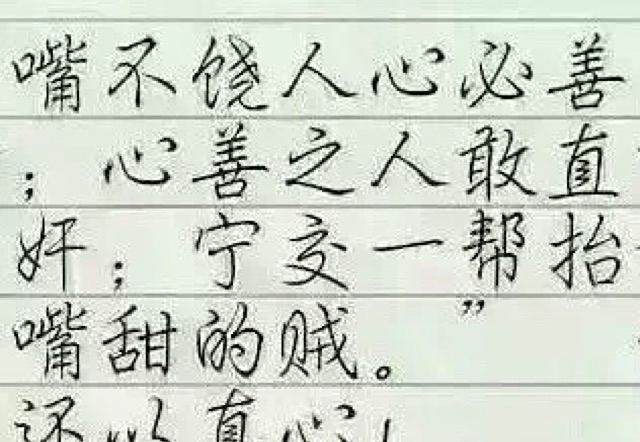 嘴不饶人心必善
；心善之人敢直
奸；宁交一帮抬
嘴甜的贼。”
还以真心！